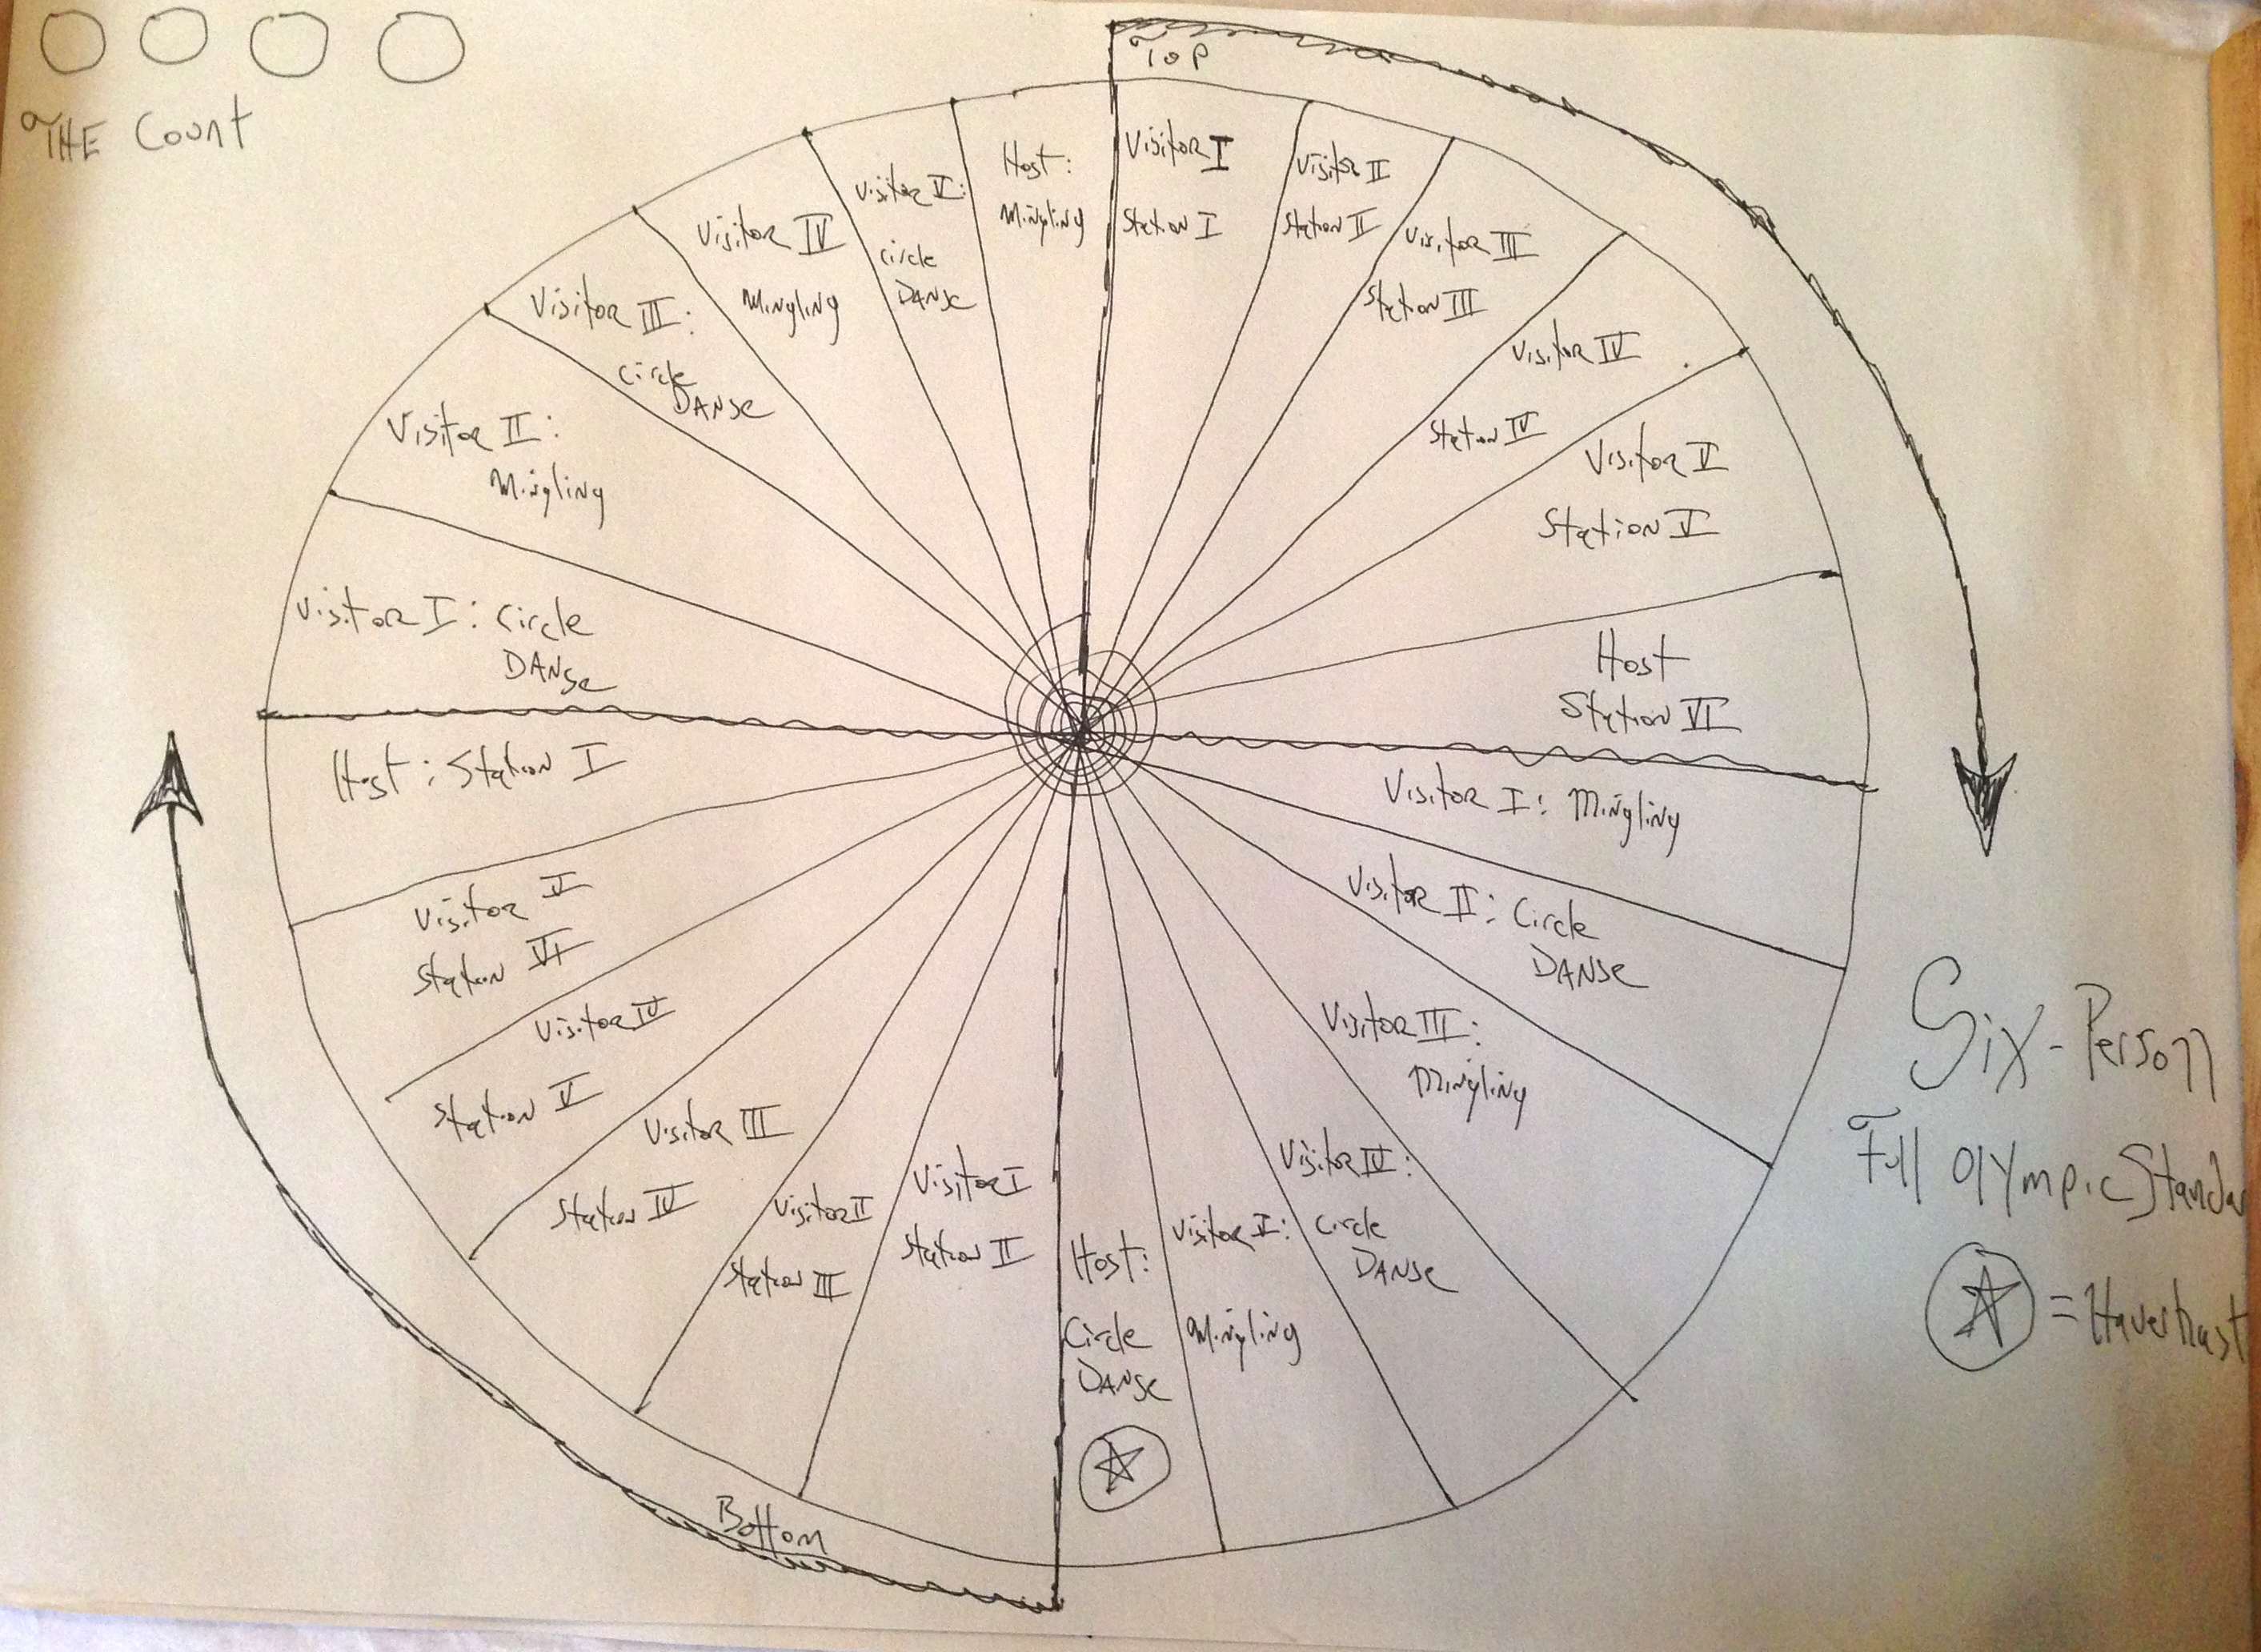 THE Count
Top
Visitor I
Station I
Visitor II
Station II
Visitor III
Station III
Visitor IV
Station IV
Visitor V
Station V
Host
Station VI
Visitor I: Mingling
Visitor II: Circle
DANSE
Visitor III:
Mingling
Visitor IV:
Circle
DANSE
Visitor V:
Mingling
Host:
Circle
DANSE
Bottom
Visitor I
Station II
Visitor II
Station III
Visitor III
Station IV
Visitor IV
Station V
Visitor V
Station VI
Host: Station I
Visitor I: Circle
DANSE
Visitor II:
Mingling
Visitor III:
Circle
DANSE
Visitor IV
Mingling
Visitor V:
Circle
DANSE
Host:
Mingling
Six-Person
Full Olympic Standa
= Haverhast